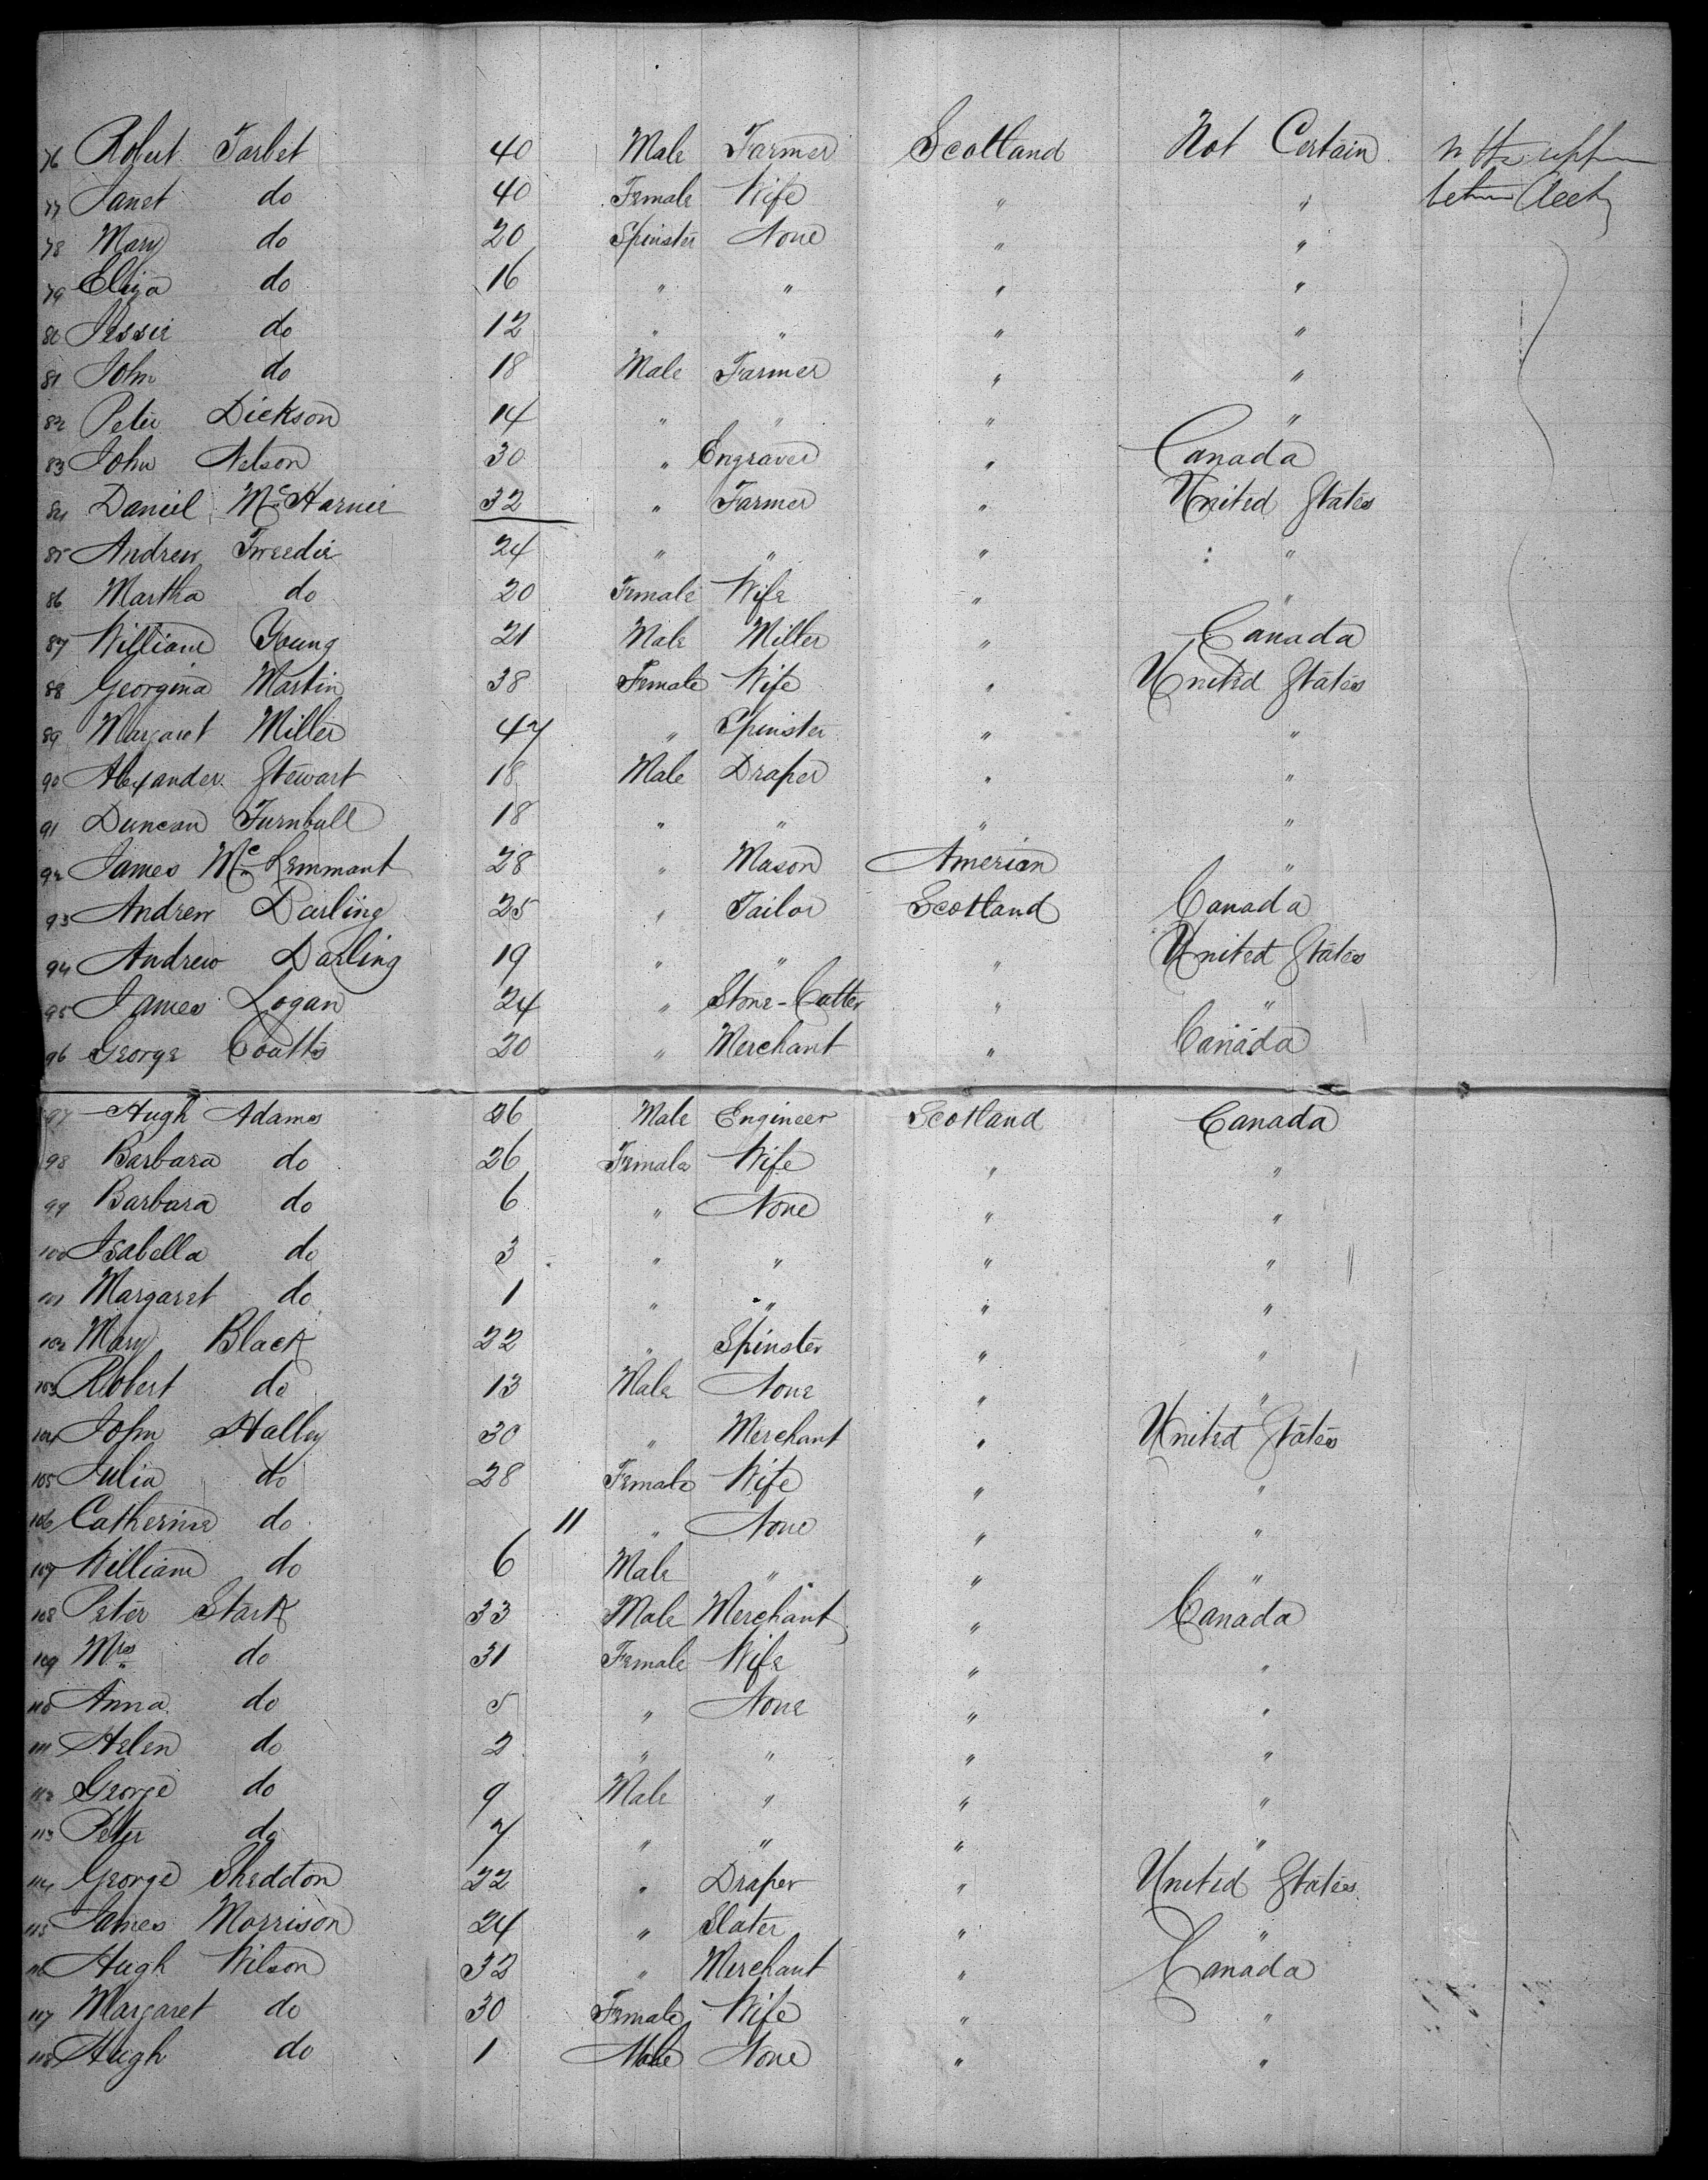 76 Robert Tarbet 40 Male Farmer Scotland Not Certain in the upper
77 Janet do 40 Female Wife " " between Decks
78 Mary do 20 Spinster None " "
79 Eliza do 16 " " " "
80 Jessie do 12 " " " "
81 John do 18 Male Farmer " "
82 Peter Dickson 14 " " " "
83 John Nelson 30 " Engraver " Canada
84 Daniel McHarnie 32 " Farmer " United States
85 Andrew Tweedie 24 " " " "
86 Martha do 20 Female Wife " "
87 William Young 21 Male Miller " Canada
88 Georgina Martin 38 Female Wife " United States
89 Margaret Miller 47 " Spinster " "
90 Alexander Stewart 18 Male Draper " "
91 Duncan Turnbull 18 " " " "
92 James Mc 28 " Mason American "
93 Andrew Darling 25 " Tailor Scotland Canada
94 Andrew Darling 19 " " " United States
95 James Logan 24 " Stone-Cutter " "
96 George Coutts 20 " Merchant " Canada
97 Hugh Adams 26 Male Engineer Scotland Canada
98 Barbara do 26 Female Wife " "
99 Barbara do 6 " None " "
100 Isabella do 3 " " " "
101 Margaret do 1 " " " "
102 Mary Black 22 " Spinster " "
103 Robert do 13 Male None " "
104 John Halley 30 " Merchant " United States
105 Julia do 28 Female Wife " "
106 Catherine do 11 " None " "
107 William do 6 Male " " "
108 Peter Stark 33 Male Merchant " Canada
109 Mrs do 31 Female Wife " "
110 Anna do 5 " None " "
111 Helen do 2 " " " "
112 George do 9 Male " " "
113 Peter do 7 " " " "
114 George Sheddon 22 " Draper " United States
115 James Morrison 24 " Slater " "
116 Hugh Wilson 32 " Merchant " Canada
117 Margaret do 30 Female Wife " "
118 Hugh do 1 Male None " "